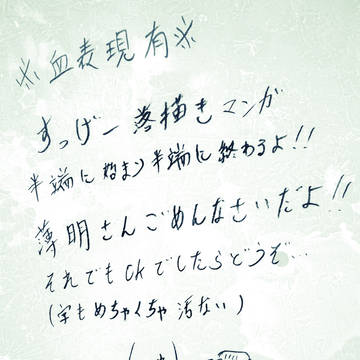 ※血表現有※
すっげー落描きマンガ
半端に始まり半端に終わるよ!!
薄明さんごめんなさいだよ!!
それでもOKでしたらどうぞ…
(字もめちゃくちゃ汚ない)